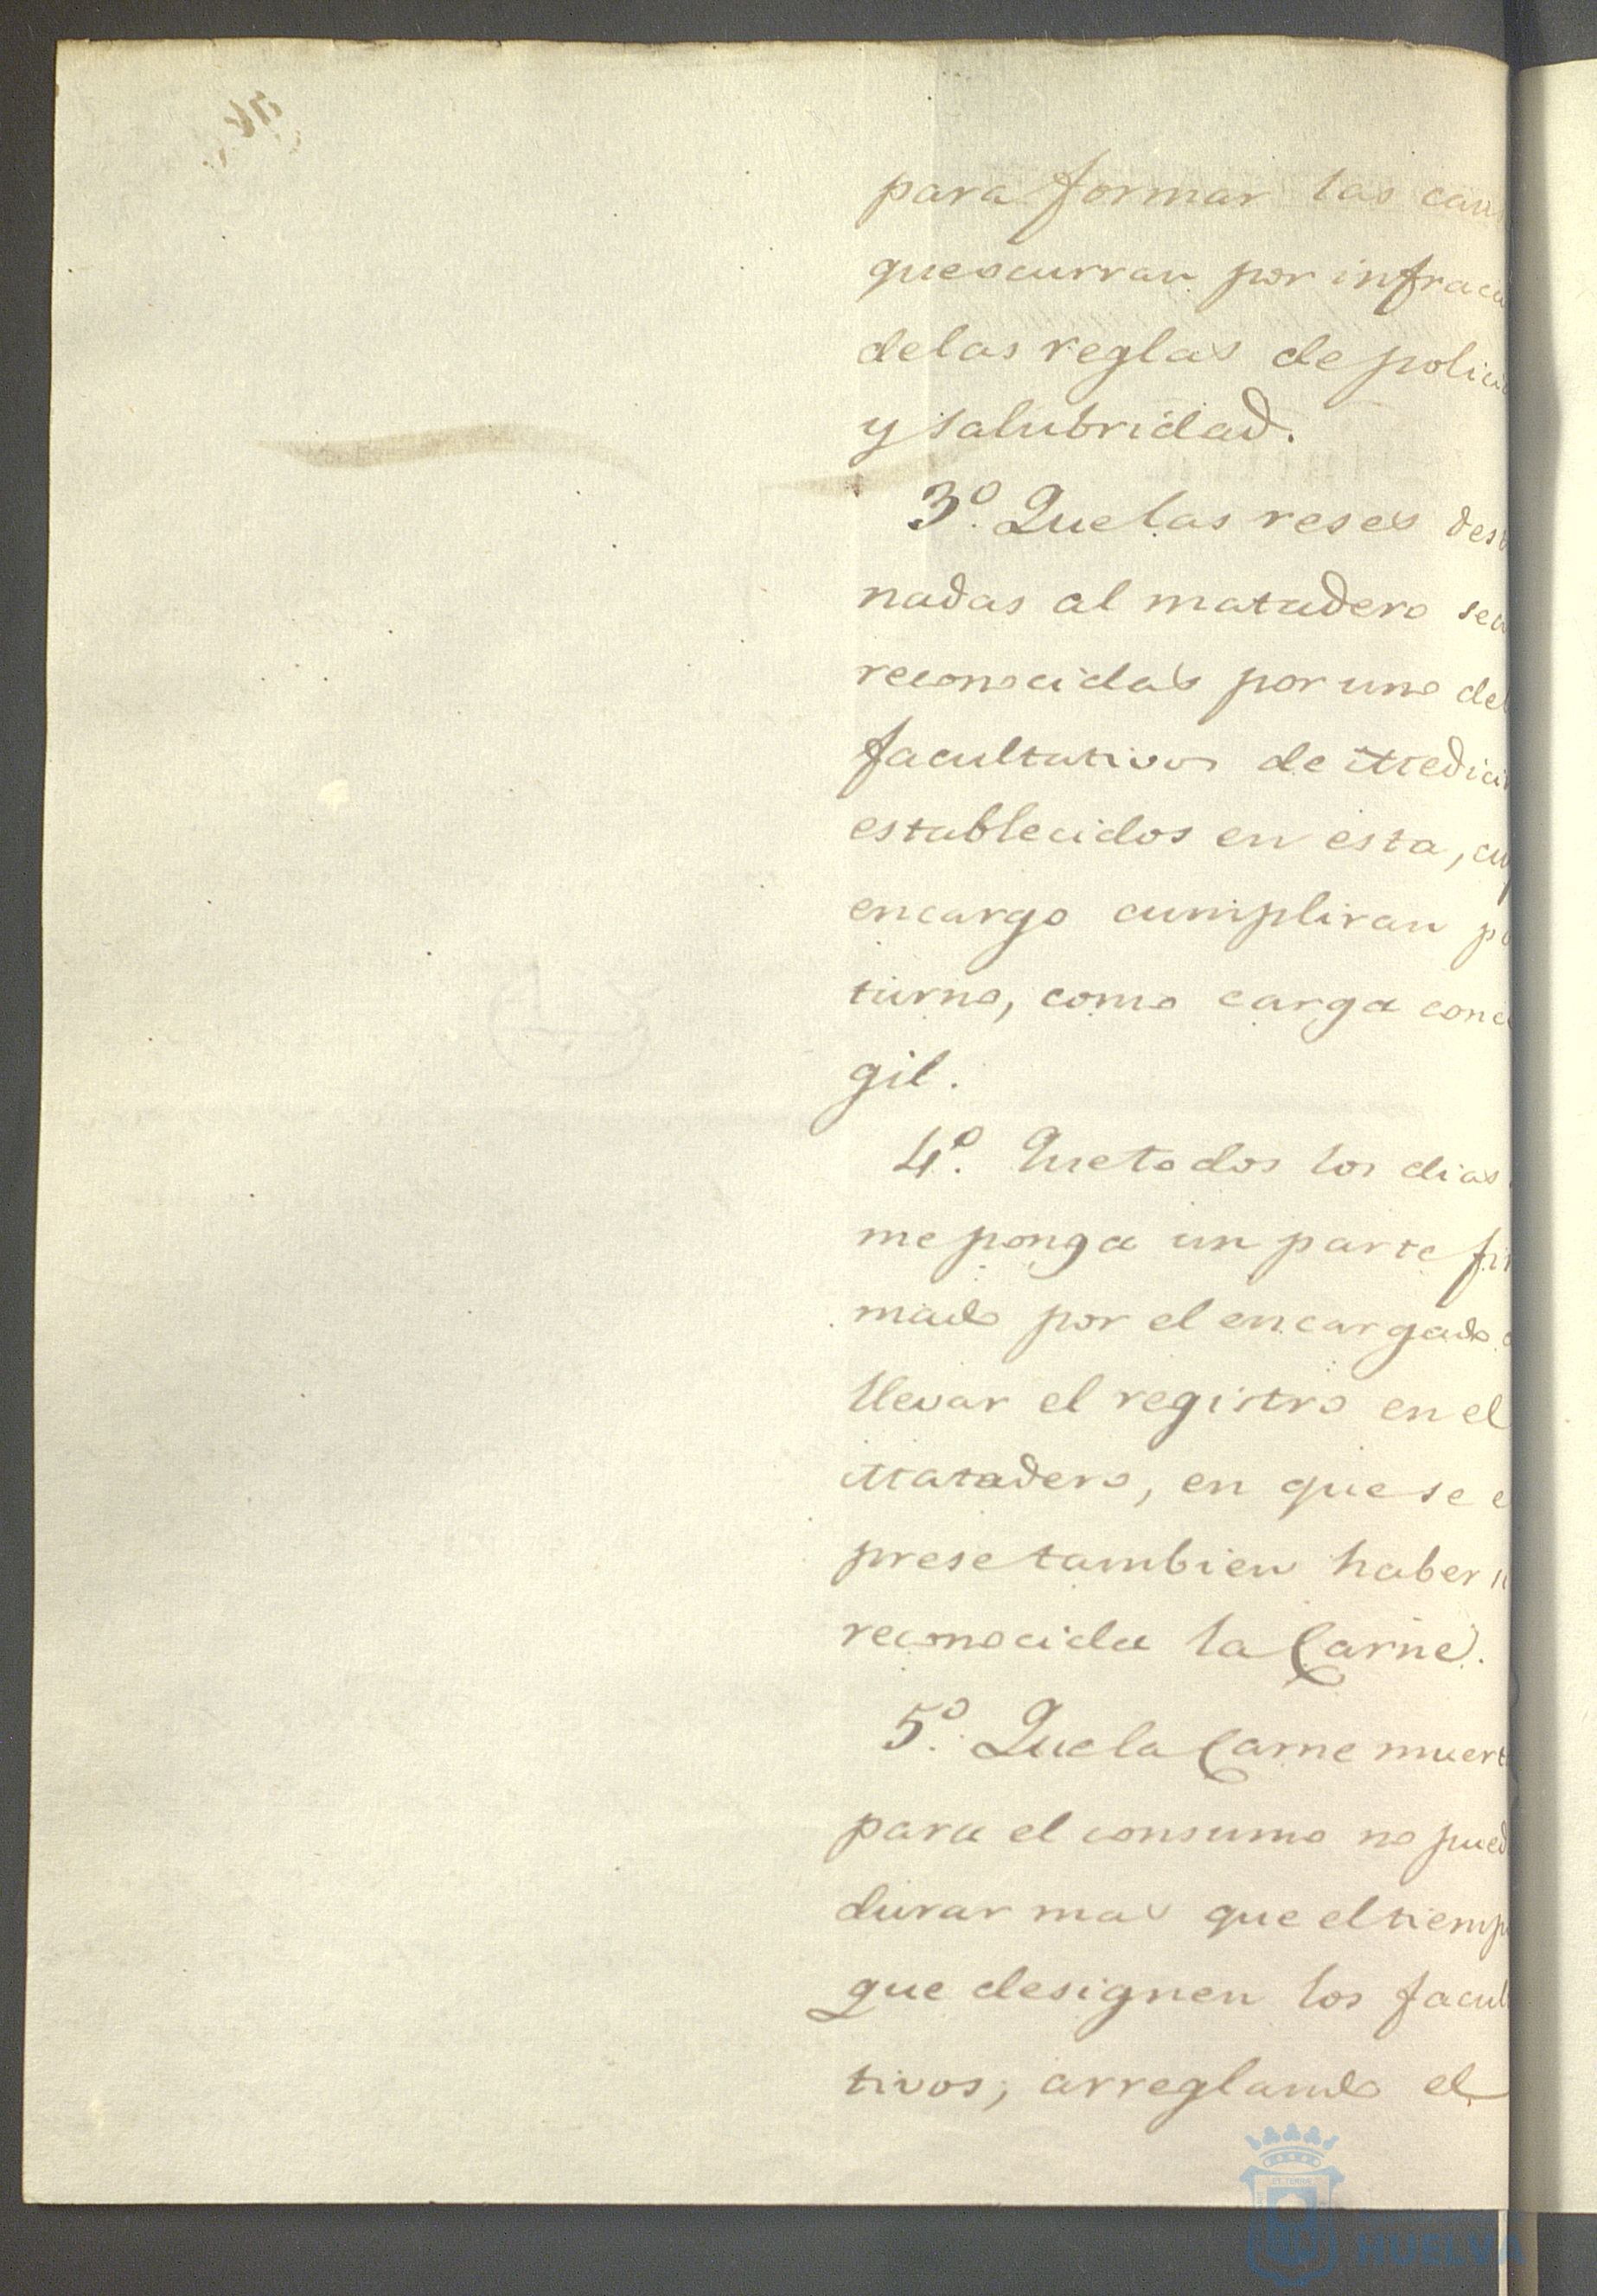 para formar las cau
que ocurran por infracci
de las reglas de polici
y salubridad.
3º. Que las reses desti
nadas al matadero sea
reconocidas por uno del
facultativos de Medicin
establecidos en esta, cuy
encargo cumpliran po
turno, como carga conce
gil.
4º. Que todos los dias
me ponga un parte fir
mado por el encargado d
llevar el registro en el
Matadero, en que se e
prese tambien haber si
reconocida la Carne.
5º. Que la Carne muert
para el consumo no pued
durar mas que el tiemp
que designen los facul
tivos; arreglando el
HUELVA